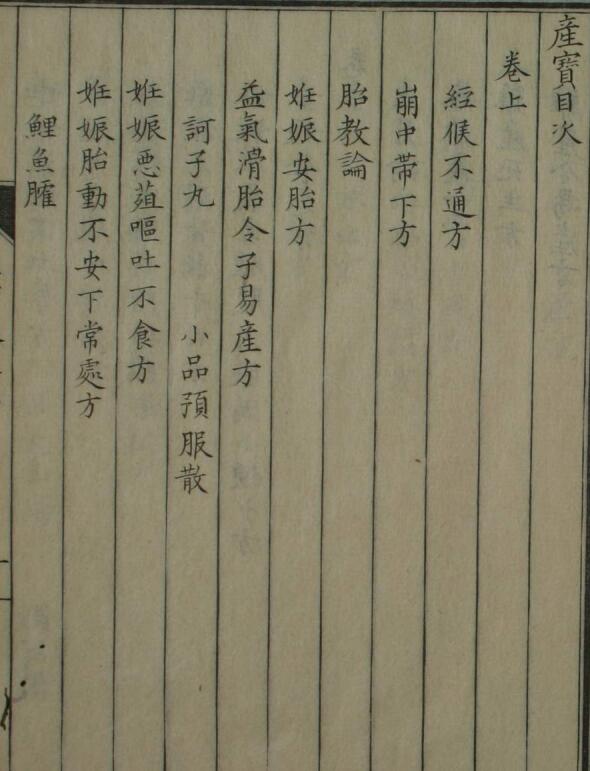 產寶目次
卷上
經候不通方
崩中帶下方
胎教論
姙娠安胎方
益氣滑胎令子易產方
訶子丸　小品預服散
姙娠惡葅嘔吐不食方
姙娠胎動不安下常處方
鯉魚臛